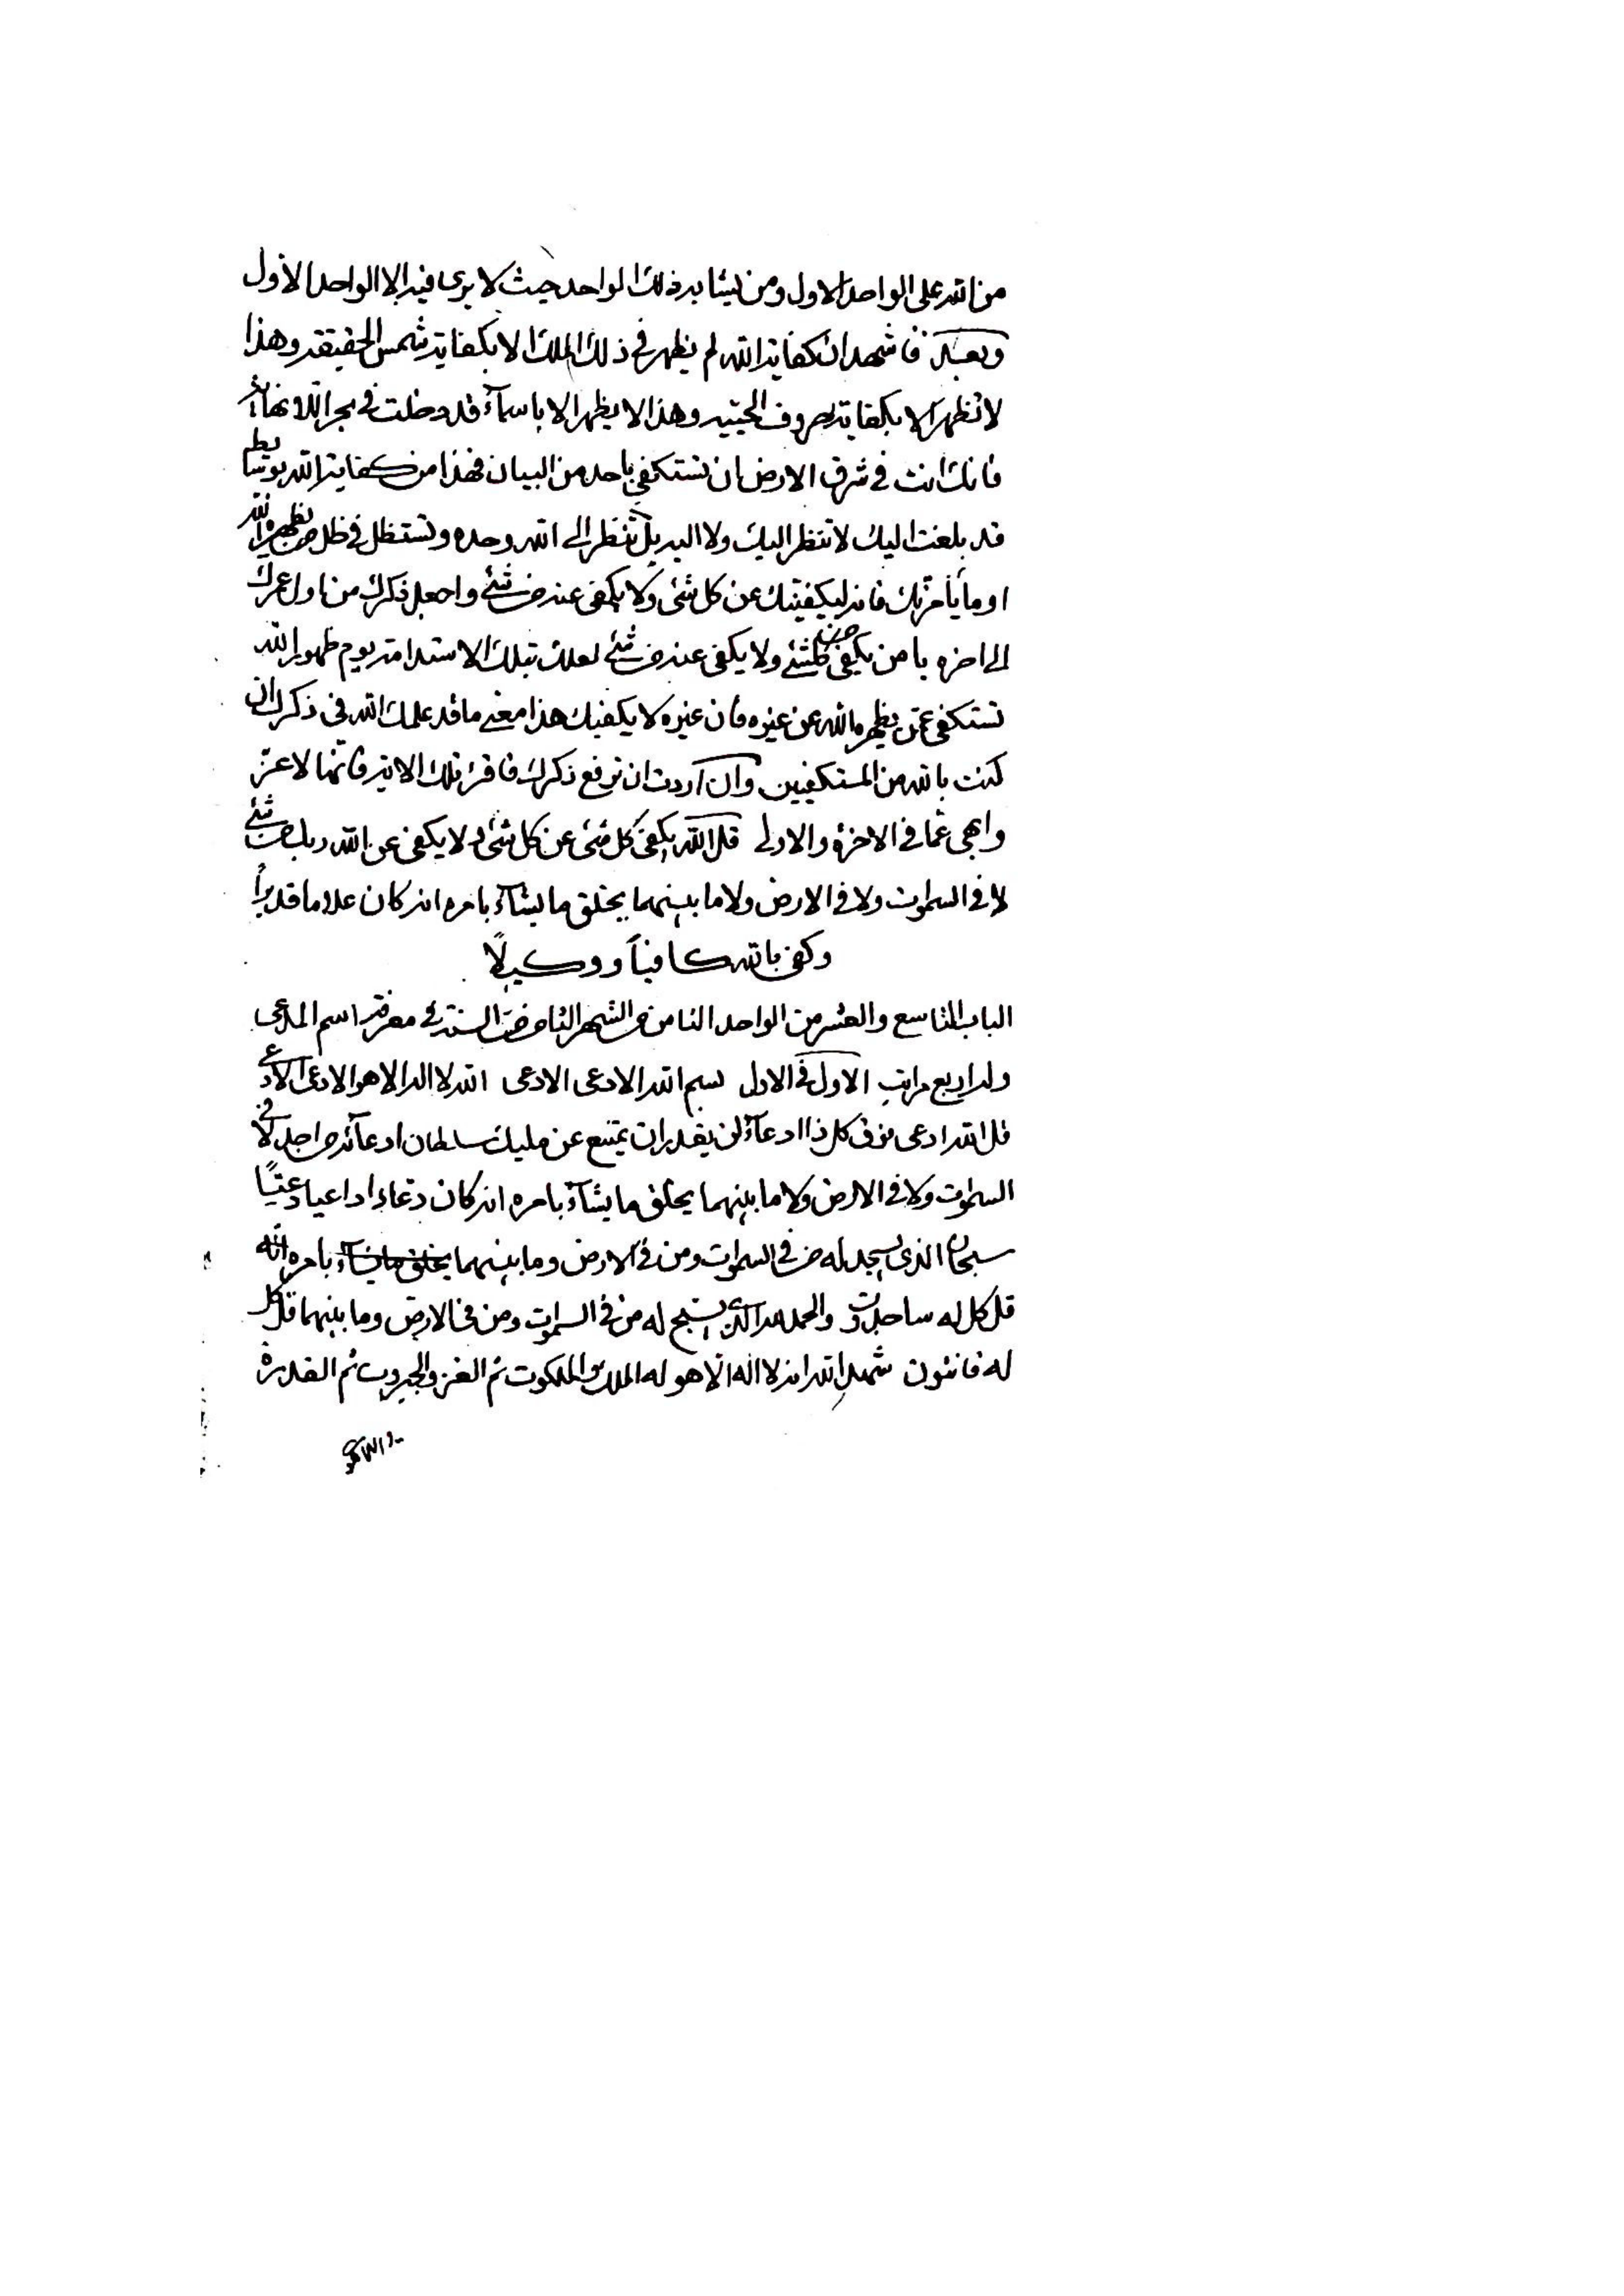 من الله على الواحد الاول ومن يشابه ذلك الواحد حيث لا يرى فيه الا الواحد الاول
وبعد فاشهد ان كفاية الله لم يظهر في ذلك الملك الا بكفاية شمس الحقيقة وهذا
لا تظهر الا بكفاية حروف الحيّيه وهذا لا يظهر الا باسمآء قد دخلت في بحر اللانهاية
فانك انت في شرق الارض ان تستكفي باحد من البيان فهذا من كفاية الله بوسايط
قد بلغت اليك لا تنظر اليك ولا اليه بل تنظر الى الله وحده وتستظل في ظل من يظهره الله
او ما يأمرنك فانه ليكفينك عن كل شئ ولا يكفى عنه من شئ واجعل ذكرك من اول عمرك
الى اخره يا من يكفى من كلشئ ولا يكفى عنه من شئ لعلك بتلك الاستدامة يوم ظهور الله
تستكفى بمن يظهره الله عن غيره فان غيره لا يكفيك هذا معنى ما قد علمك الله في ذكرك ان
كنت بالله من المستكفيين وان اردت ان ترفع ذكرك فاقرء تلك الاية فانها لاعز
وابهى عما في الاخرة والاولى قل الله يكفى كل شئ عن كل شئ ولا يكفى عن الله ربك من شئ
لا في السموات ولا في الارض ولا ما بينهما يخلق ما يشآء بامره انه كان علاما قديرا
وكفى بالله كافياً ووكيلًا
الباب التاسع والعشر من الواحد الثامن من الشهر الثامن من السنة في معرفة اسم المدعى
وله اربع مراتب الاول في الاول بسم الله الادعى الادعى الله لا اله الا هو الادعى الادعى
قل الله ادعى فوق كل ذا ادعآء لن يقدر ان يمتنع عن مليك سلطان ادعآئه من احد لا في
السموات ولا في الارض ولا ما بينهما يخلق ما يشآء بامره انه كان دعاء داعيا دعيًّا
سبحان الذى يسجد له من في السموات ومن في الارض وما بينهما يخلق ما يشآء بامره انه
قل كل له ساجدون والحمد لله الذي يسبح له من في السموات ومن في الارض وما بينهما قل كل
له قانتون شهد الله انه لا اله الا هو له الملك والملكوت ثم العز والجبروت ثم القدرة